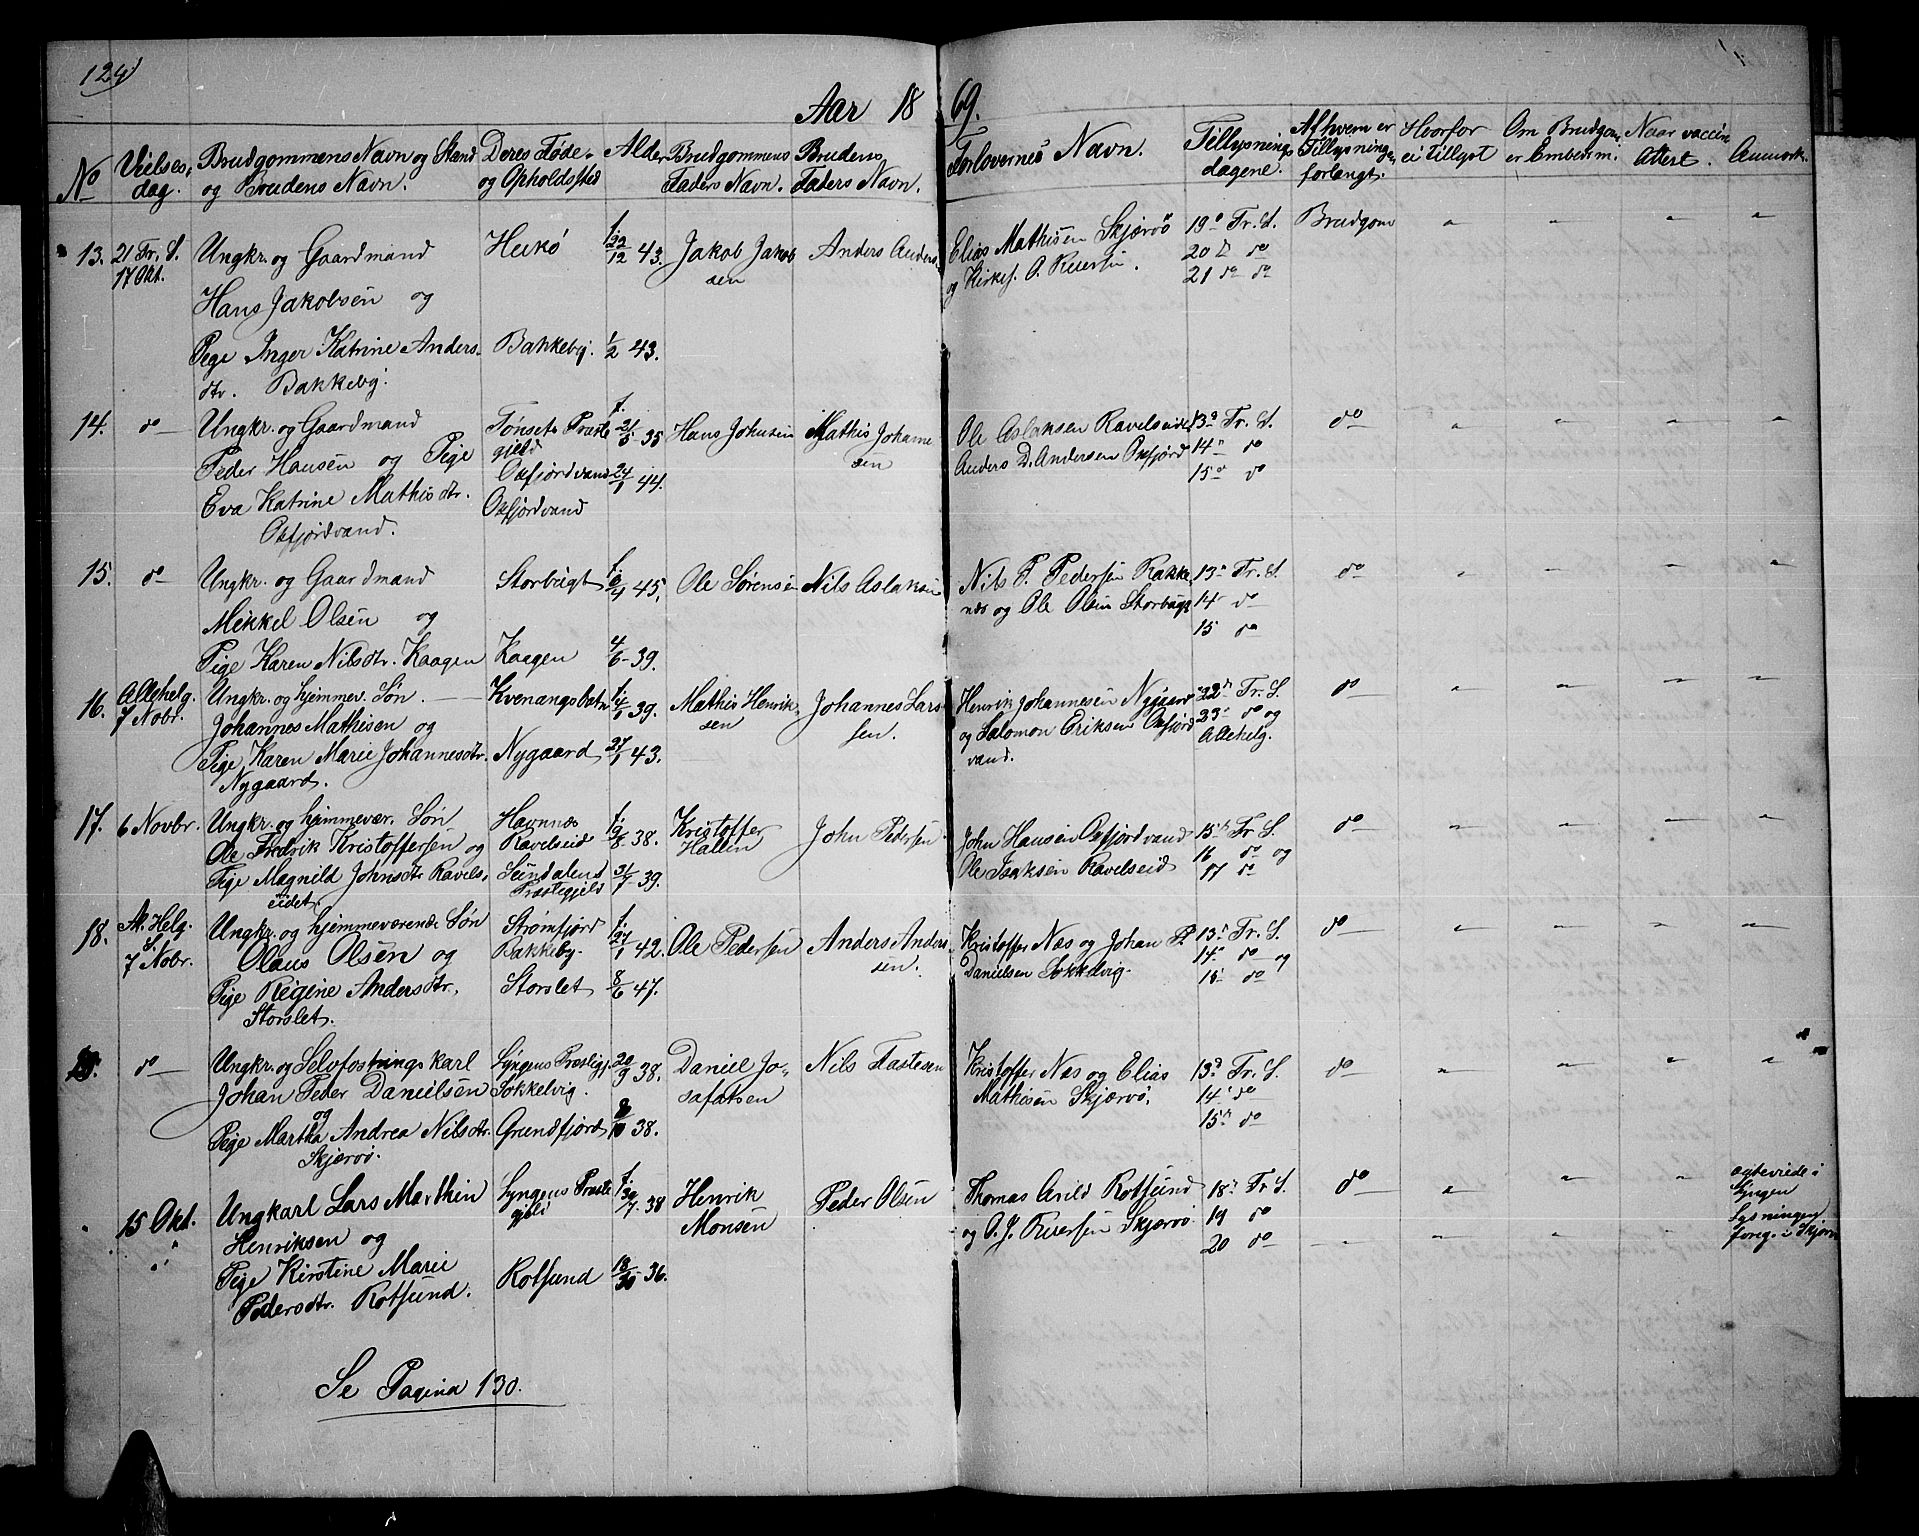 124
Aar 18 69.
No
Vielses-
dag.
Brudgommens Navn og Stand
og Brudens Navn.
Deres Føde-
og Opholdssted
Alder
Brudgommens
Faders Navn.
Brudens
Faders Navn.
Forlovernes Navn.
Tillysnings
dagene.
Af hvem er
Tillysningen
forlangt.
Hvorfor
ei tillyst
Om Brudgom.
er Embedsm.
Naar vaccin.
Attest.
Anmærk.
13. 21 Fr. S.
17 Okt.
Ungkr. og Gaardmand
Hans Jakobsen og
Pige Inger Katrine Anders-
dtr. Bakkeby.
Heikø
Bakkeby.
f. 22/12 43.
1/2 43.
Jakob Jakob
sen
Anders Anders-
Elias Mathisen Skjærvö
og Kirkes. O. Riversen.
19de Fr. S.
20 do do
21 do do
Brudgom
14. do
Ungkr. og Gaardmand
Peder Hansen og Pige
Eva Katrine Mathisdtr.
Oxfjordvand.
Tønset Præste
gjeld
Oxfjordvand
Oxfjordvand
f. 21/5 35
24/1 44.
Hans Johnsen
Mathis Johanne
sen
Ole Aslaksen Ravelseidet
Anders D. Andersen Oxfjord
13de Fr. S.
14 do
15de do
do
15. do
Ungkr. og Gaardmand
Mikkel Olsen og
Pige Karen Nilsdtr. Kaagen
Storbugt
Kaagen
45.
4/6 39.
Ole Sørensen
Nils Aslaksen
Nils P. Pedersen Rakke
næs og Ole Olsen Storbugt
13de Fr. S.
14 do
15 do
do
16. Allehelg.
7 Nobr.
Ungkr. og hjemmev. Søn
Johannes Mathisen og
Pige Karen Marie Johannesdtr.
Nygaard.
Kvenangsbotn
Nygaard
f. 4/1 39.
27/1 43.
Mathis Henrik-
sen
Johannes Lars
sen.
Henrik Johannesen Nygaard
og Salomon Eriksen Oxfjord
vand.
22de Fr. S.
23de do og
Allehelg.
do
17. 6 Novbr.
Ungkr. og hjemmevær. Søn
Ole Fredrik Kristoffersen og
Pige Magnild Johnsdtr Ravels-
eidet.
Havnnæs
Ravelseid
Sundalens
Præstegjeld
f. 9/8 38.
31/7 39.
Kristoffer
Hallen
John Pedersen
John Hansen Oxfjordvand
Ole Isaksen Ravelseid
15de Fr S.
16 do og
17 do
do
18. Al. Helg.
S.
7 Nobr.
Ungkr. og hjemmeværende Søn
Olaus Olsen og
Pige Regine Andersdtr.
Storslet.
Strømfjord
Bakkeby.
Storslet
f. 27/1 42.
8/6 47.
Ole Pedersen
Anders Anders
sen.
Kristoffer Næs og Johan P.
Danielsen Sokkelvig.
13de Fr. S.
14de do og
15 do
do
do
Ungkr. og Selvfostringskarl
Johan Peder Danielsen
og
Pige Martha Andrea Nilsdtr.
Skjærvö.
Lyngens Præstegj.
Sokkelvig.
Grundfjord
20/9 38.
38.
Daniel Jo-
safatsen
Nils Fastesen
Kristoffer Næs og Elias
Mathisen Skjærvö.
13de Fr. S.
14de do
15de do
do
15 Okt.
Ungkarl Lars Marthin
Henriksen og
Pige Kirstine Marie
Pedersdtr. Rotsund.
Lyngens Præste
gjeld
Rotsund
f. 30/7 38
36.
Henrik
Monsen
Peder Olsen
Thomas Arild Rotsund
og O. J. Riversen Skjærvö.
18de Fr S.
19 do
20 do
do
ægteviede i
Lyngen
Lysningen
foreg. i Skjærv
Se Pagina 130.